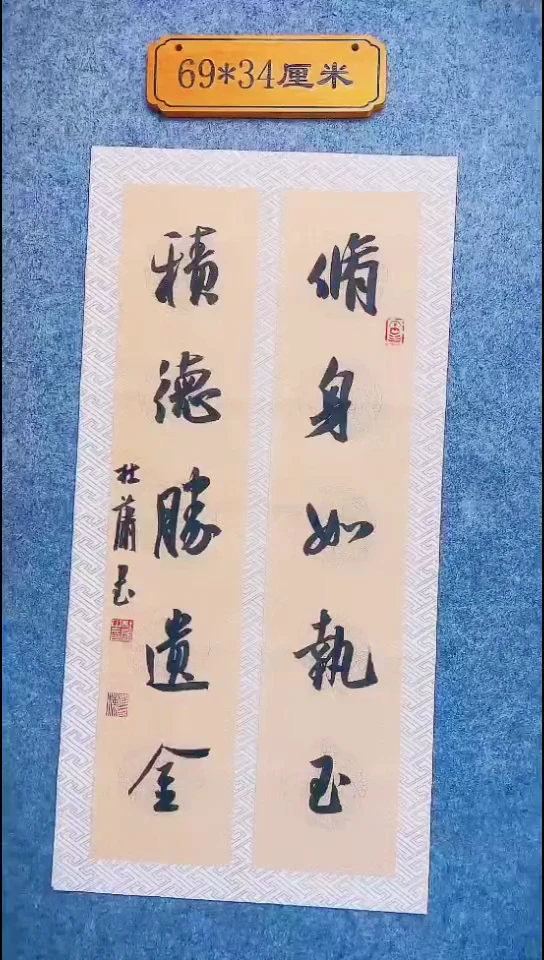 69*34厘米
脩身如執玉
積德勝遺金
杜蕭玉